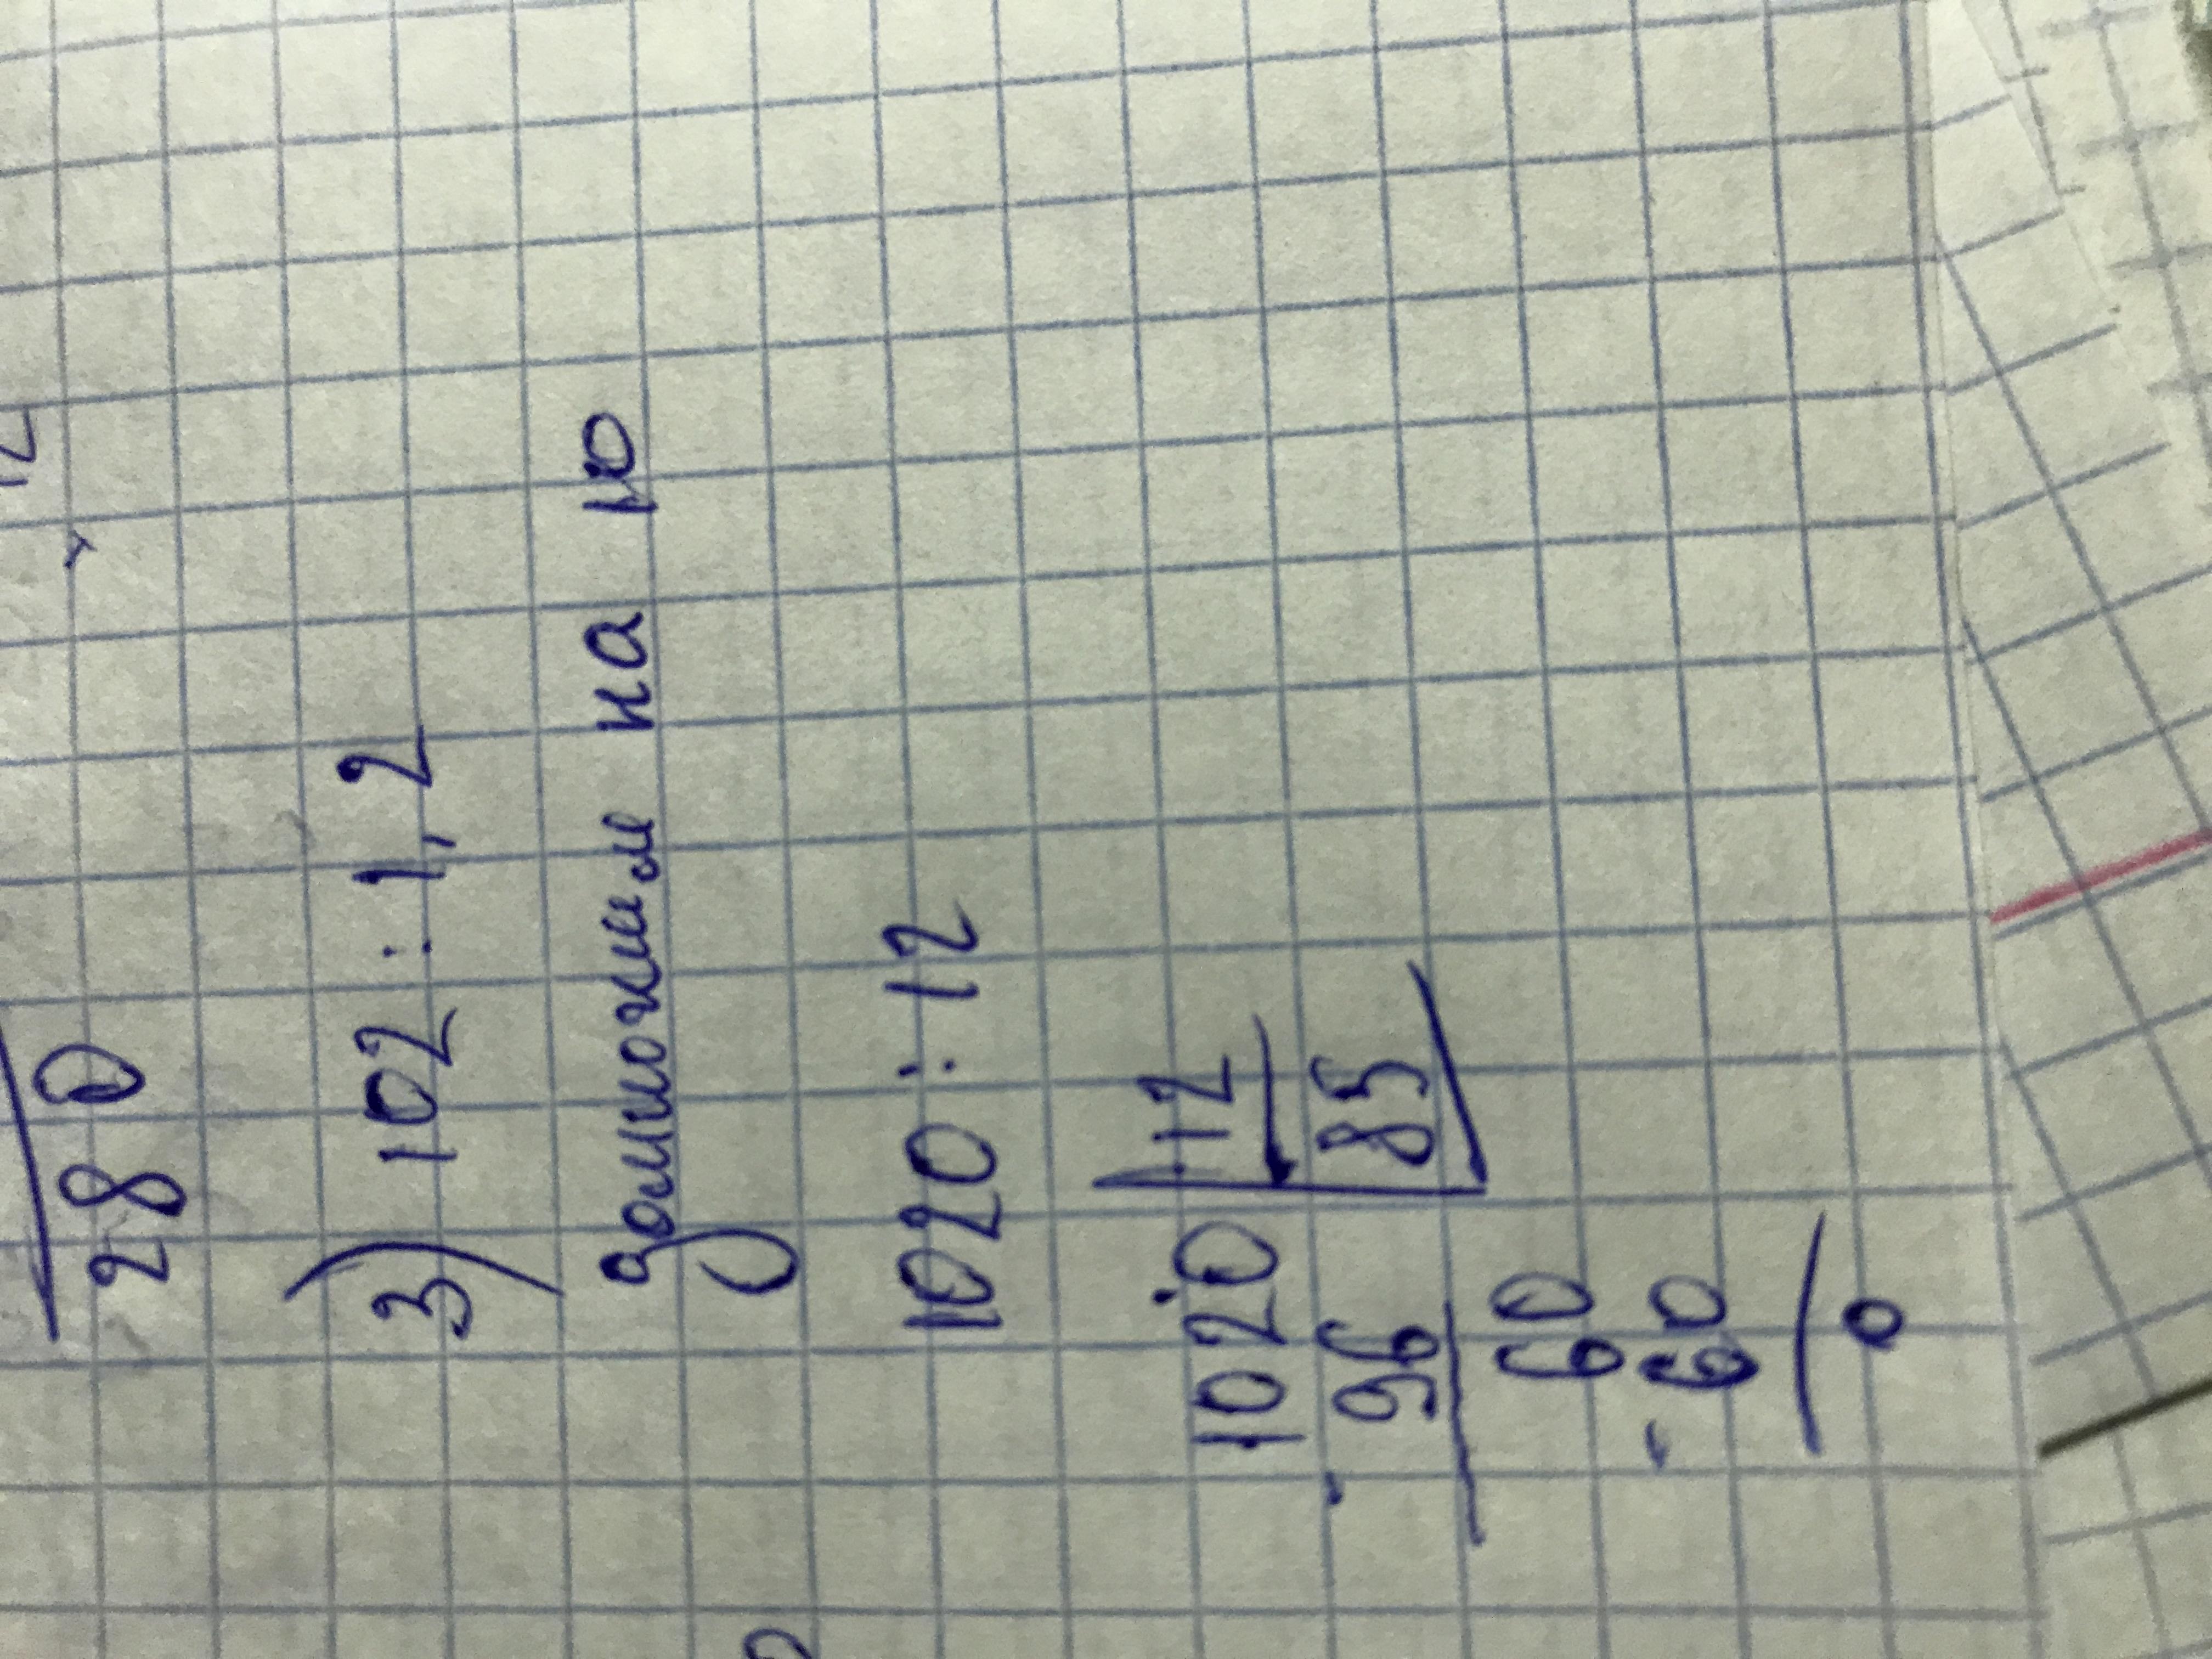 280
3) 102 : 1,2
домножим на 10
1020 : 12
1020 | 12
- 96 | 85
60
- 60
0